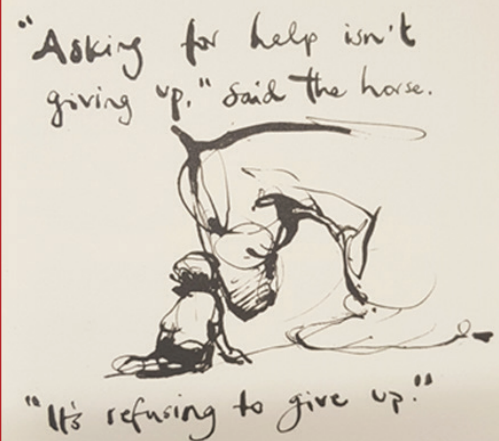 "Asking for help isn't
giving up." said the horse.
"It's refusing to give up."